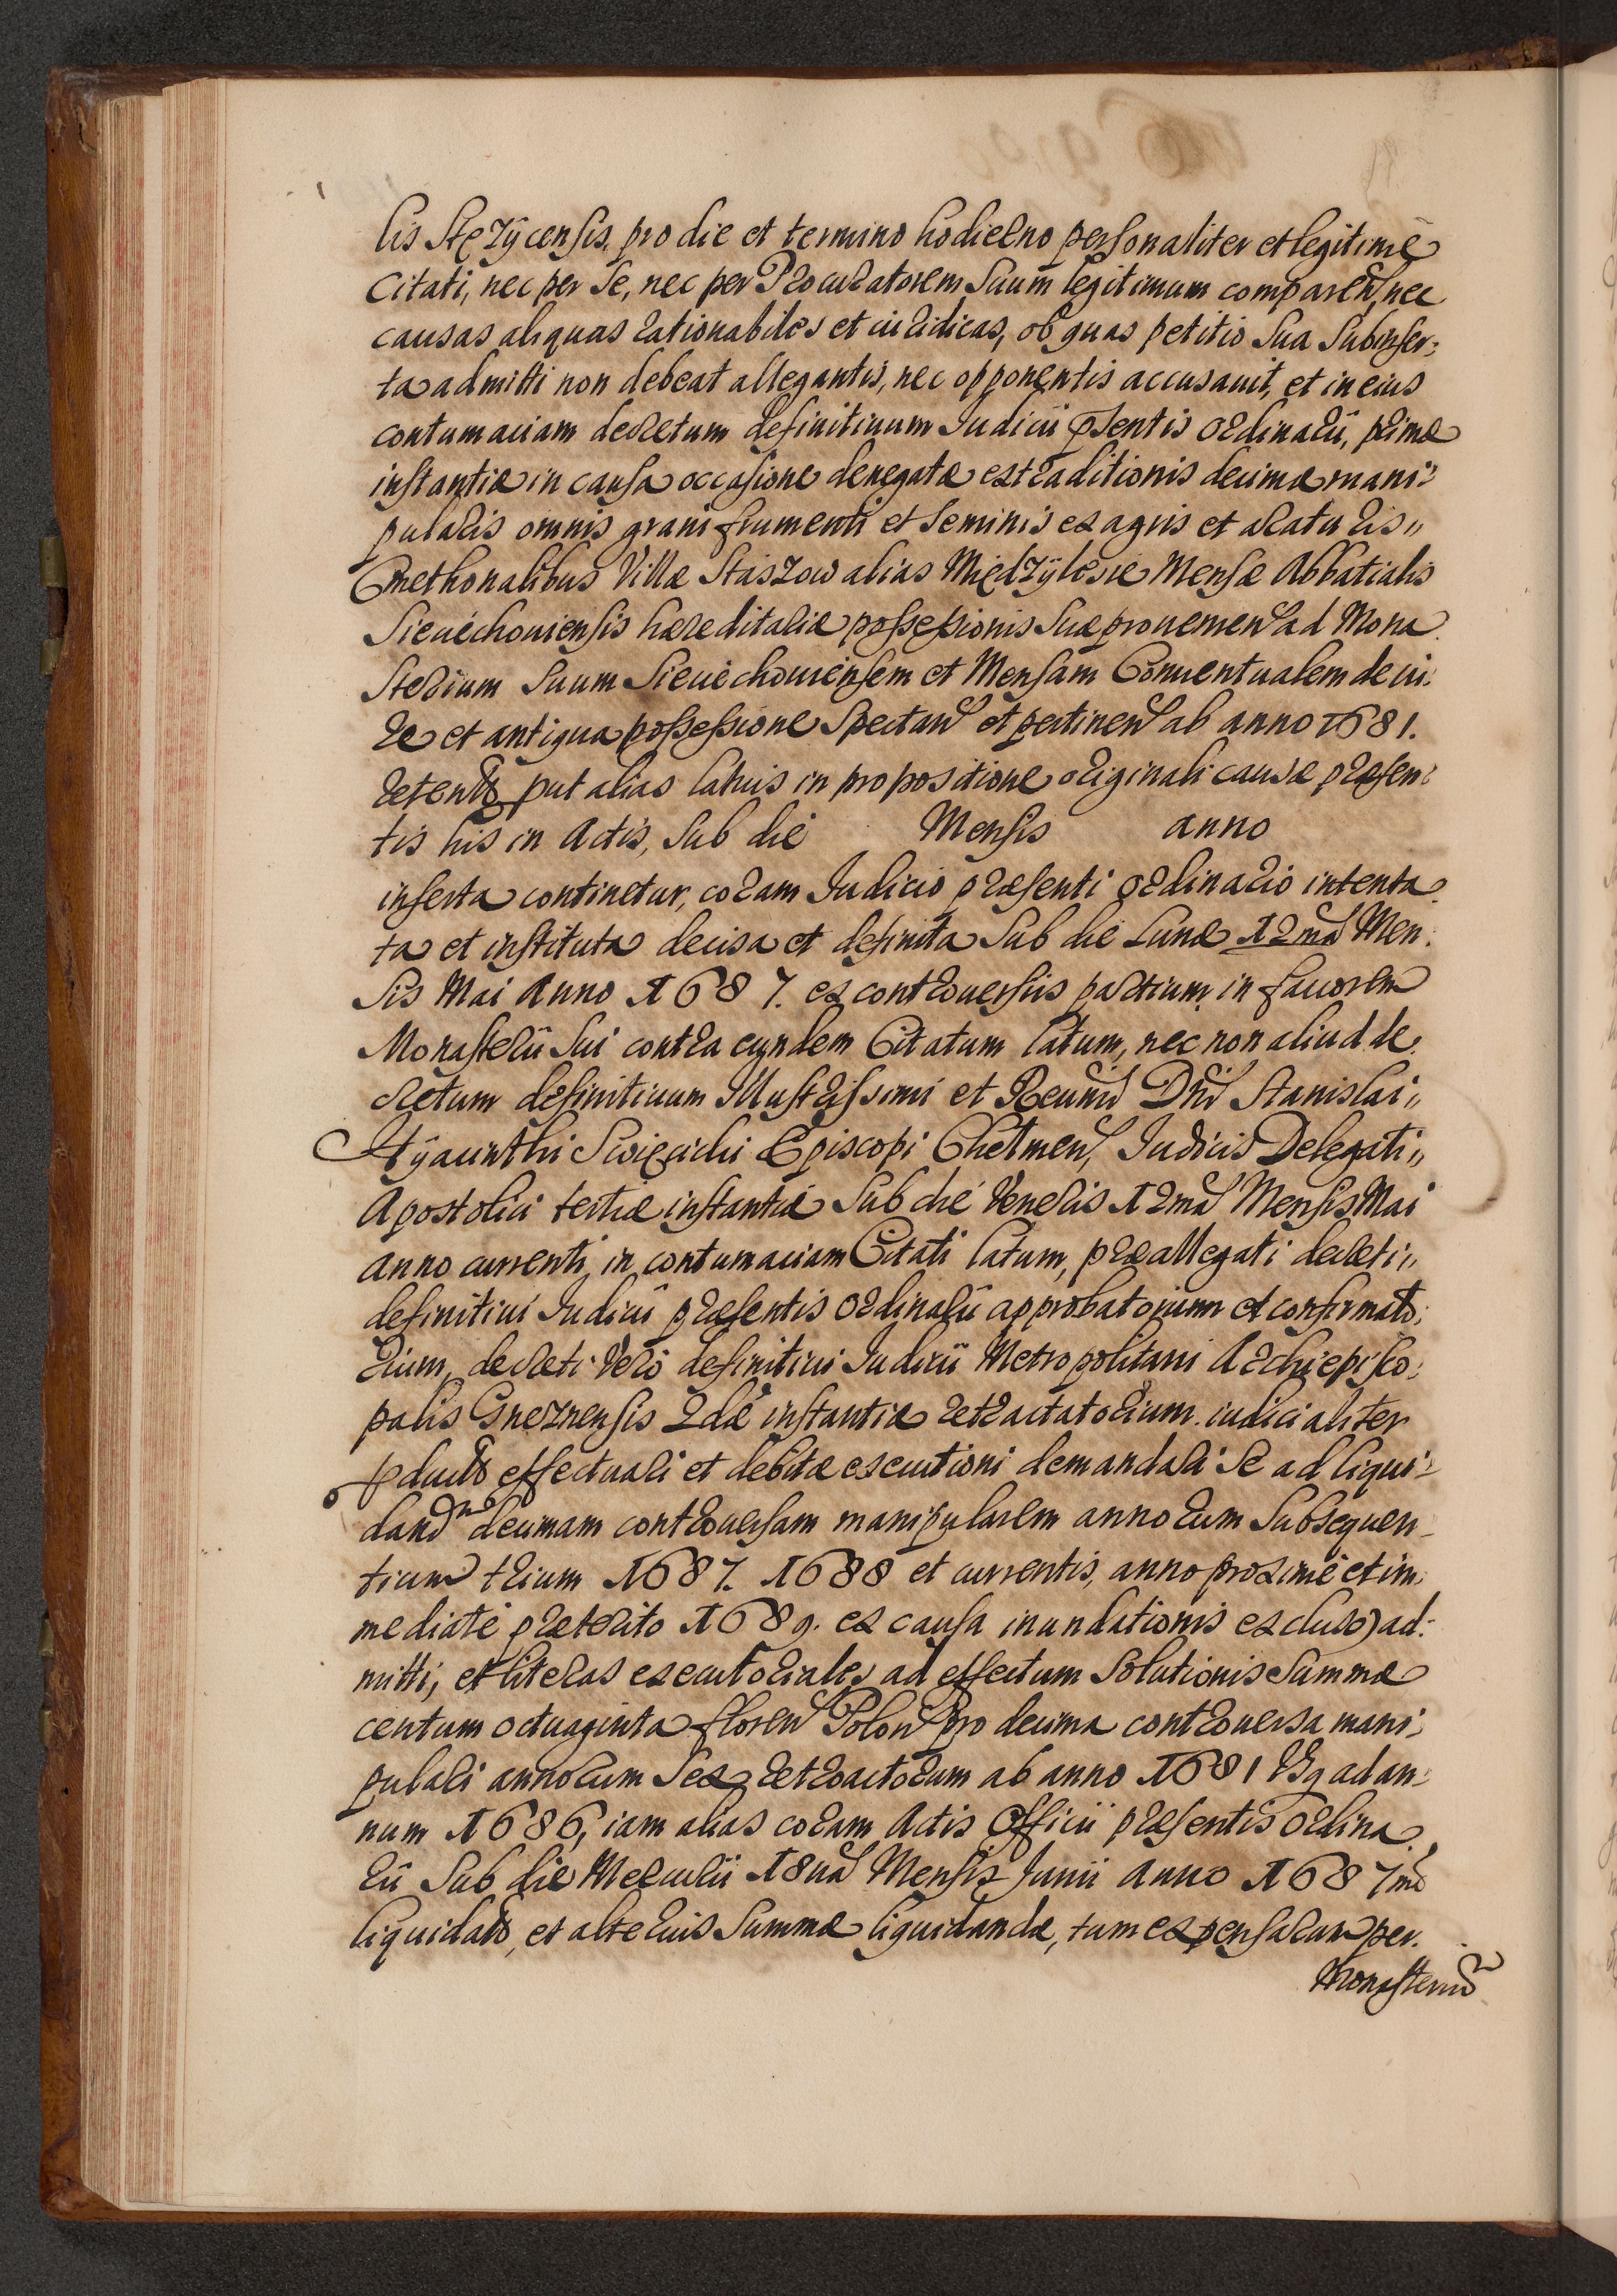 lis Stęzÿcensis, pro die et termino hodierno personaliter et legitimè
Citati, nec per Se, nec per Procuratorem Suum legitimum comparen, nec
causas aliquas rationabiles et iuridicas, ob quas petitio Sua Subinser:
ta admitti non debeat allegantis, nec opponentis accusauit, et in eius
contumaciam decretum definitiuum Iudicii pñtentis ordinarii, primæ
instantiæ in causa occasione denegatæ extraditionis decimæ mani:
pularis omnis grani frumenti et Seminis ex agris et araturis„
Cmethonalibus Villæ Staszow alias Międzÿlesie Mensæ Abbatialis
Sieciechouiensis hæreditariæ possessionis Suæ prouenien ad Mona
Sterium Suum Sieciechouiensem et Mensam Conuentualem de iu:
re et antiqua possessione Spectan et pertinen ab anno 1681.
retent put alias latius in propositione originali causæ præsen:
tis his in Actis, Sub die Mensis anno
inserta continetur, coram Iudicio præsenti ordinario intenta
ta et instituta decisa et definita Sub die Lunæ 12ma Men:
Sis Mai Anno 1687. ex controuersiis partium in fauorem
Monasterii Sui contra eundem Citatum latum, nec non aliud de:
cretum definitiuum Illustrissimi et Reuñd Dñi Stanislai„
Hÿacinthi Swięcicki Episcopi Chelmen, Iudicis Delegati„
Apostolici tertiæ instantiæ Sub die Veneris 12ma Mensis Mai
anno currenti in contumaciam Citati latum, præallegati decreti„
definitiui Iudicii præsentis ordinarii approbatorium et confirmato:
rium, decreti Verò definitiui Iudicii Metropolitani Archiepisco:
palis Gneznensis 2dæ instantiæ retractatorium iudicialiter
pduct effectuari et debitæ executioni demandari Se ad liqui:
dand decimam controuersam manipularem annorum Subsequen
tium trium 1687. 1688 et currentis, anno proximè et im:
mediatè præterito 1689. ex causa inundationis excluso) ad:
mitti, et literas executoriales ad effectum Solutionis Summæ
centum octuaginta floren Polon pro decima controuersa mani:
pulari annorum Sex retroactorum ab anno 1681 Vsq ad an:
num 1686, iam alias coram Actis Officii præsentis ordina
rii Sub die Mercurii 18ua Mensis Junii Anno 1687mo
liquidat, et alterius Summæ liquidandæ, tum expensarum per
Monasteriu